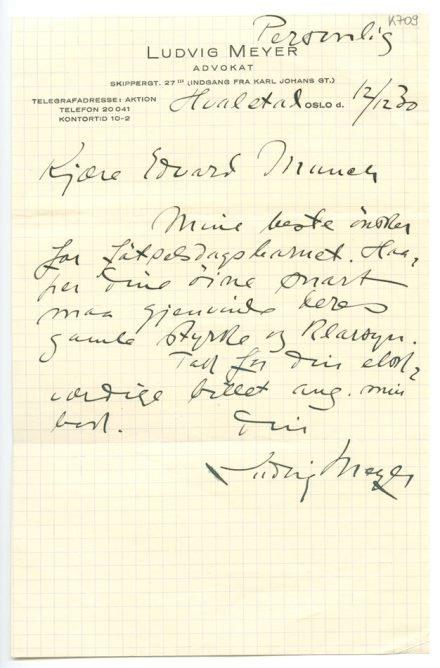 K709
Personlig
LUDVIG MEYER
ADVOKAT
SKIPPERGT. 27 III (INDGANG FRA KARL JOHANS GT.)
TELEGRAFADRESSE: AKTION
TELEFON 20041
KONTORTID 10-2
Hvalstad OSLO d. 12/12 30
Kjære Edvard Munch
Mine beste önsker
for fötselsdagsbarnet. Haa-
per dine öine snart
maa gjenvinde deres
gamle styrke og klarsyn.
Takk for din elsk-
værdige billet ang. min
bok.
Din
Ludvig Meyer